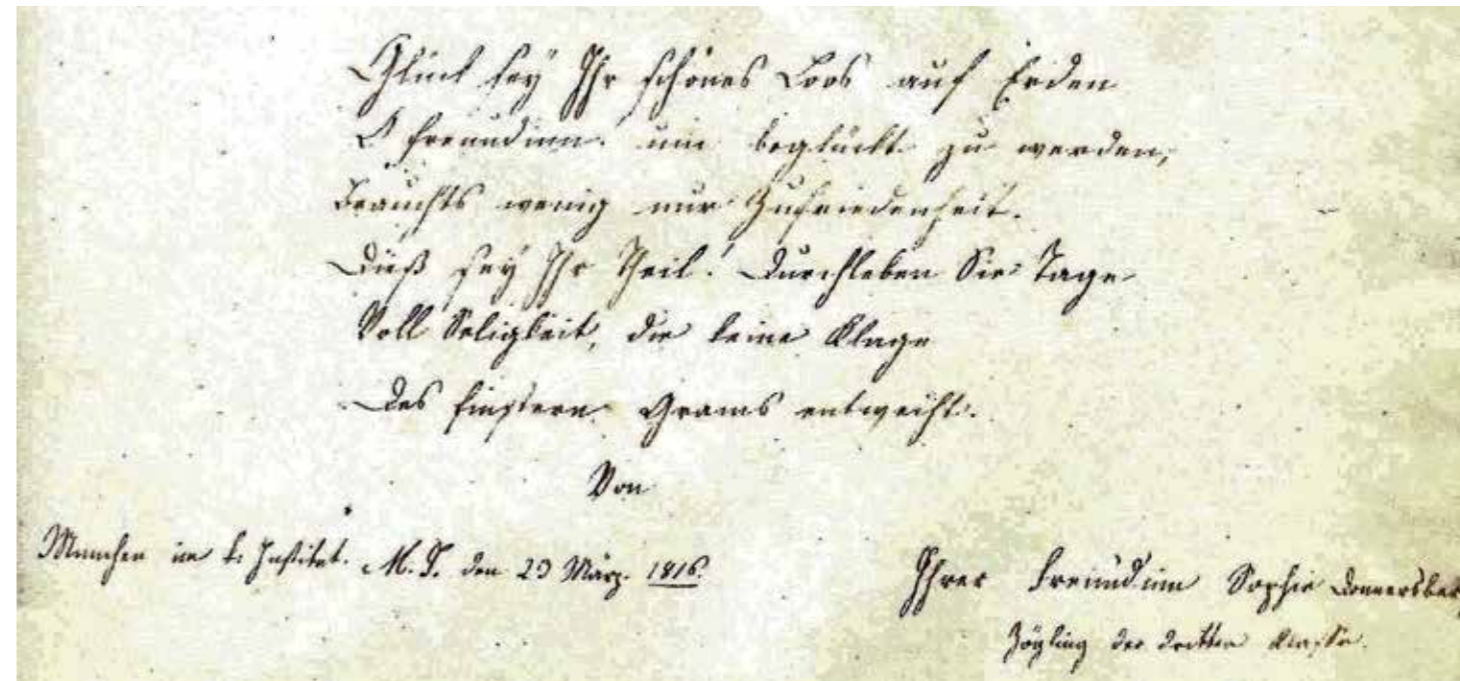 Glück sey Ihr schönes Loos auf Erden
O Freundinn! um beglückt zu werden,
Brauchts wenig nur Zufriedenheit.
Dieß sey Ihr Theil! Durchleben Sie Tage
Voll Seligkeit, die keine Klage
Des finstern Grams entweiht.
Von
Munchen im k. Institut. M. J. den 23 März. 1816.
Ihrer Freundinn Sophie Donnersber
Zögling der dritten Klasse.